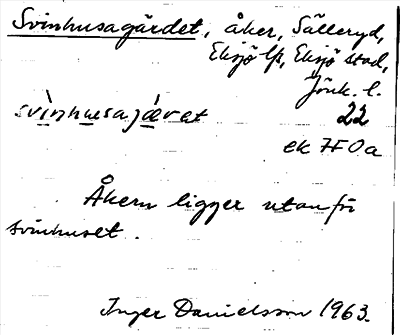 Svinhusagärdet, åker, Sälleryd,
Eksjö lfs, Eksjö stad,
Jönk. l.
svìnhusajæ̀ret 22
ek 7F0a
Åkern ligger utanför
svinhuset.
Inger Danielsson 1963.